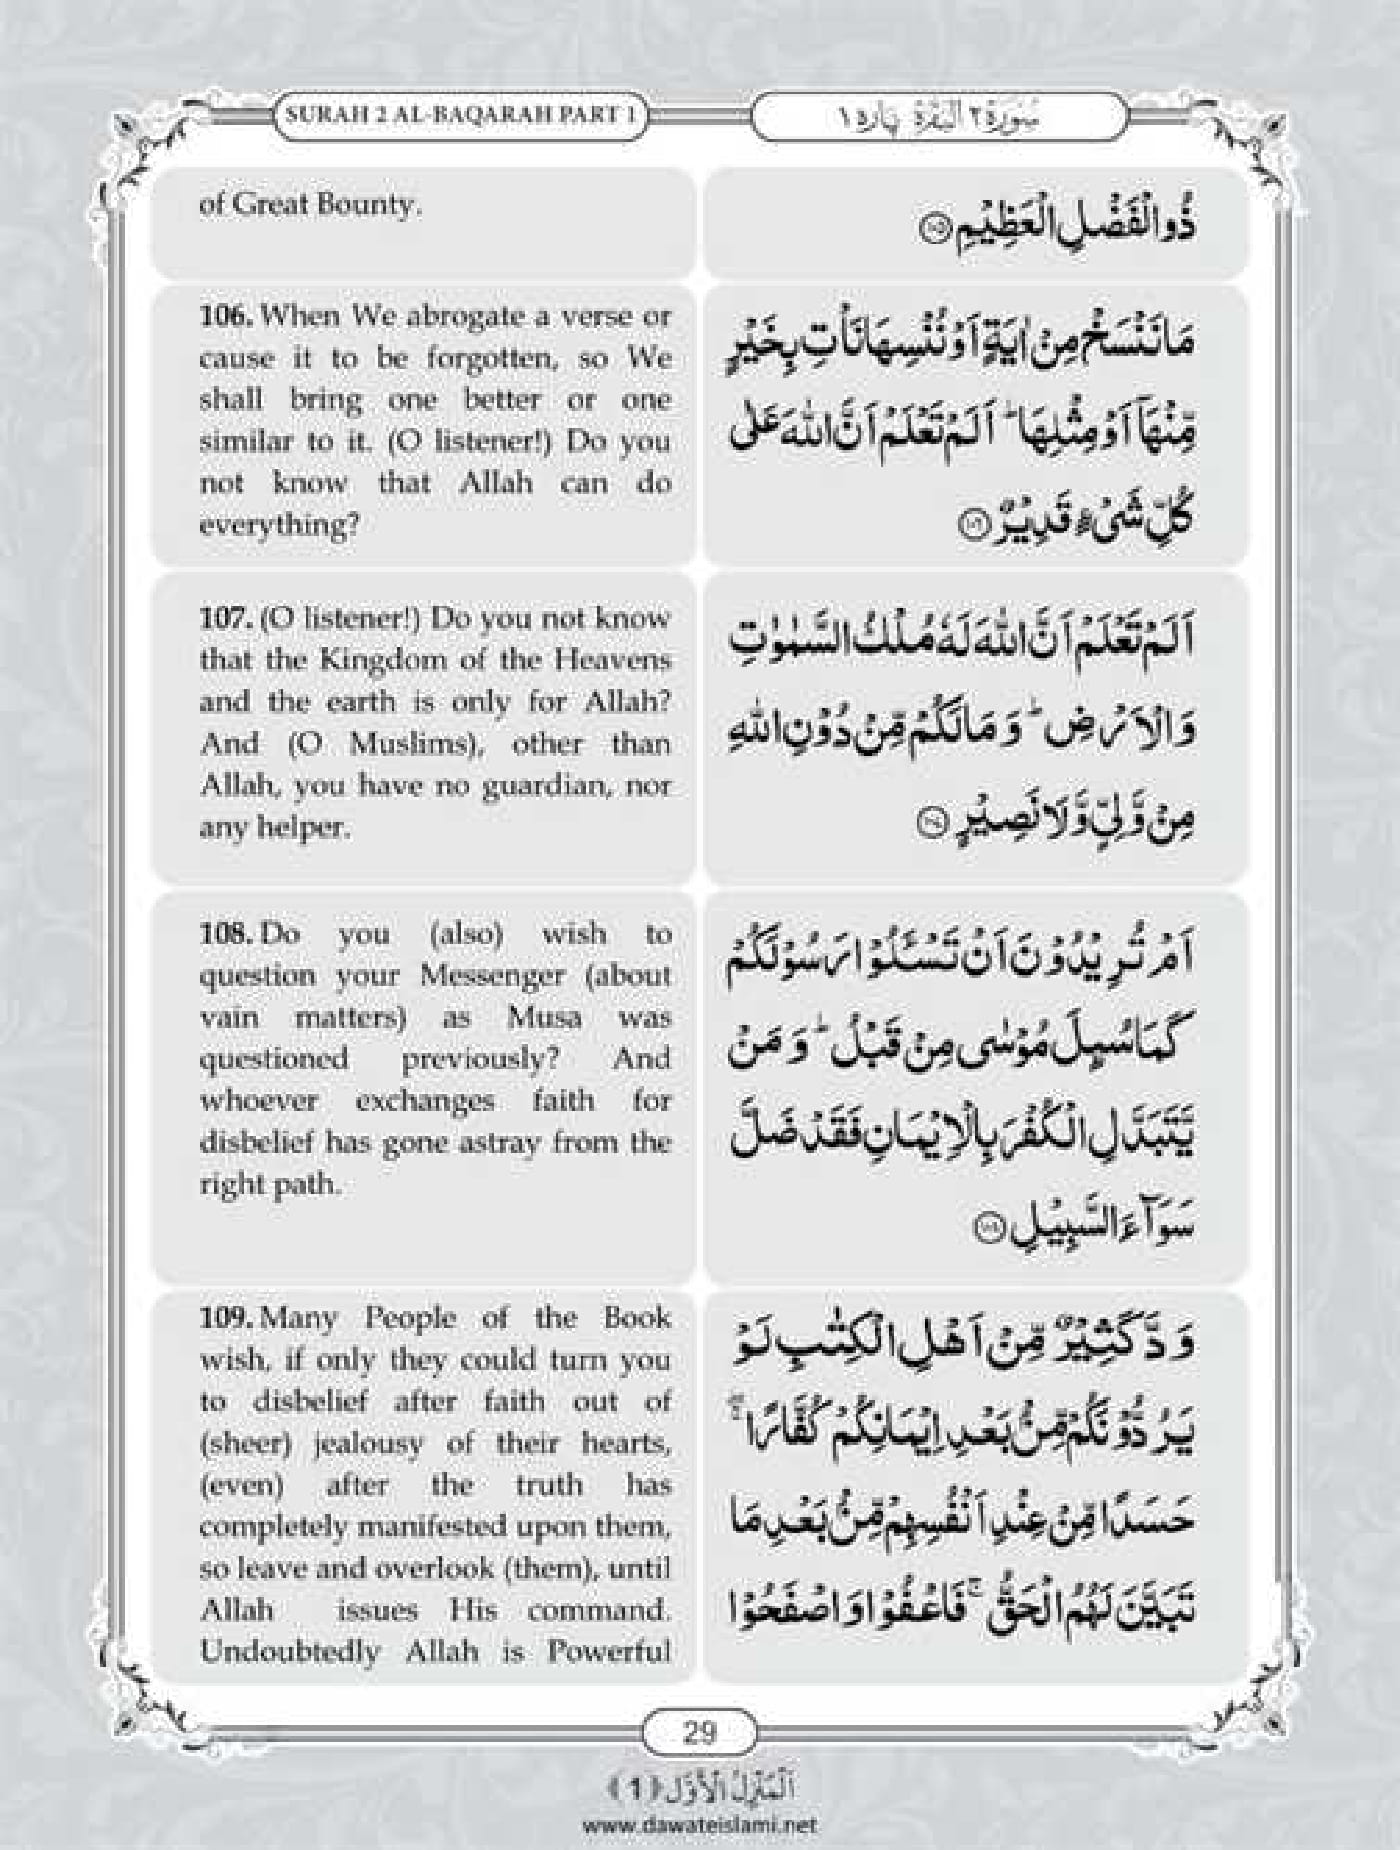 SURAH 2 AL-BAQARAH PART 1
سُوْرَة ٢ الْبَقَرَة پاره ١
of Great Bounty.
ذُو الْفَضْلِ الْعَظِيْمِ ﴿۱۰۵﴾
106. When We abrogate a verse or
cause it to be forgotten, so We
shall bring one better or one
similar to it. (O listener!) Do you
not know that Allah can do
everything?
مَا نَنْسَخْ مِنْ اٰيَةٍ اَوْ نُنْسِهَا نَاْتِ بِخَيْرٍ
مِّنْهَاۤ اَوْ مِثْلِهَا ؕ اَلَمْ تَعْلَمْ اَنَّ اللّٰهَ عَلٰى
كُلِّ شَیْءٍ قَدِيْرٌ ﴿۱۰۶﴾
107. (O listener!) Do you not know
that the Kingdom of the Heavens
and the earth is only for Allah?
And (O Muslims), other than
Allah, you have no guardian, nor
any helper.
اَلَمْ تَعْلَمْ اَنَّ اللّٰهَ لَهٗ مُلْكُ السَّمٰوٰتِ
وَالْاَرْضِ ؕ وَمَا لَكُمْ مِّنْ دُوْنِ اللّٰهِ
مِنْ وَّلِیٍّ وَّلَا نَصِيْرٍ ﴿۱۰۷﴾
108. Do you (also) wish to
question your Messenger (about
vain matters) as Musa was
questioned previously? And
whoever exchanges faith for
disbelief has gone astray from the
right path.
اَمْ تُرِيْدُوْنَ اَنْ تَسْـَٔلُوْا رَسُوْلَكُمْ
كَمَا سُىِٕلَ مُوْسٰى مِنْ قَبْلُ ؕ وَمَنْ
يَّتَبَدَّلِ الْكُفْرَ بِالْاِيْمَانِ فَقَدْ ضَلَّ
سَوَآءَ السَّبِيْلِ ﴿۱۰۸﴾
109. Many People of the Book
wish, if only they could turn you
to disbelief after faith out of
(sheer) jealousy of their hearts,
(even) after the truth has
completely manifested upon them,
so leave and overlook (them), until
Allah issues His command.
Undoubtedly Allah is Powerful
وَدَّ كَثِيْرٌ مِّنْ اَهْلِ الْكِتٰبِ لَوْ
يَرُدُّوْنَكُمْ مِّنْۢ بَعْدِ اِيْمَانِكُمْ كُفَّارًا ۖۚ
حَسَدًا مِّنْ عِنْدِ اَنْفُسِهِمْ مِّنْۢ بَعْدِ مَا
تَبَيَّنَ لَهُمُ الْحَقُّ ۚ فَاعْفُوْا وَاصْفَحُوْا
29
اَلْمَنْزِلُ الْاَوَّل ﴿1﴾
www.dawateislami.net